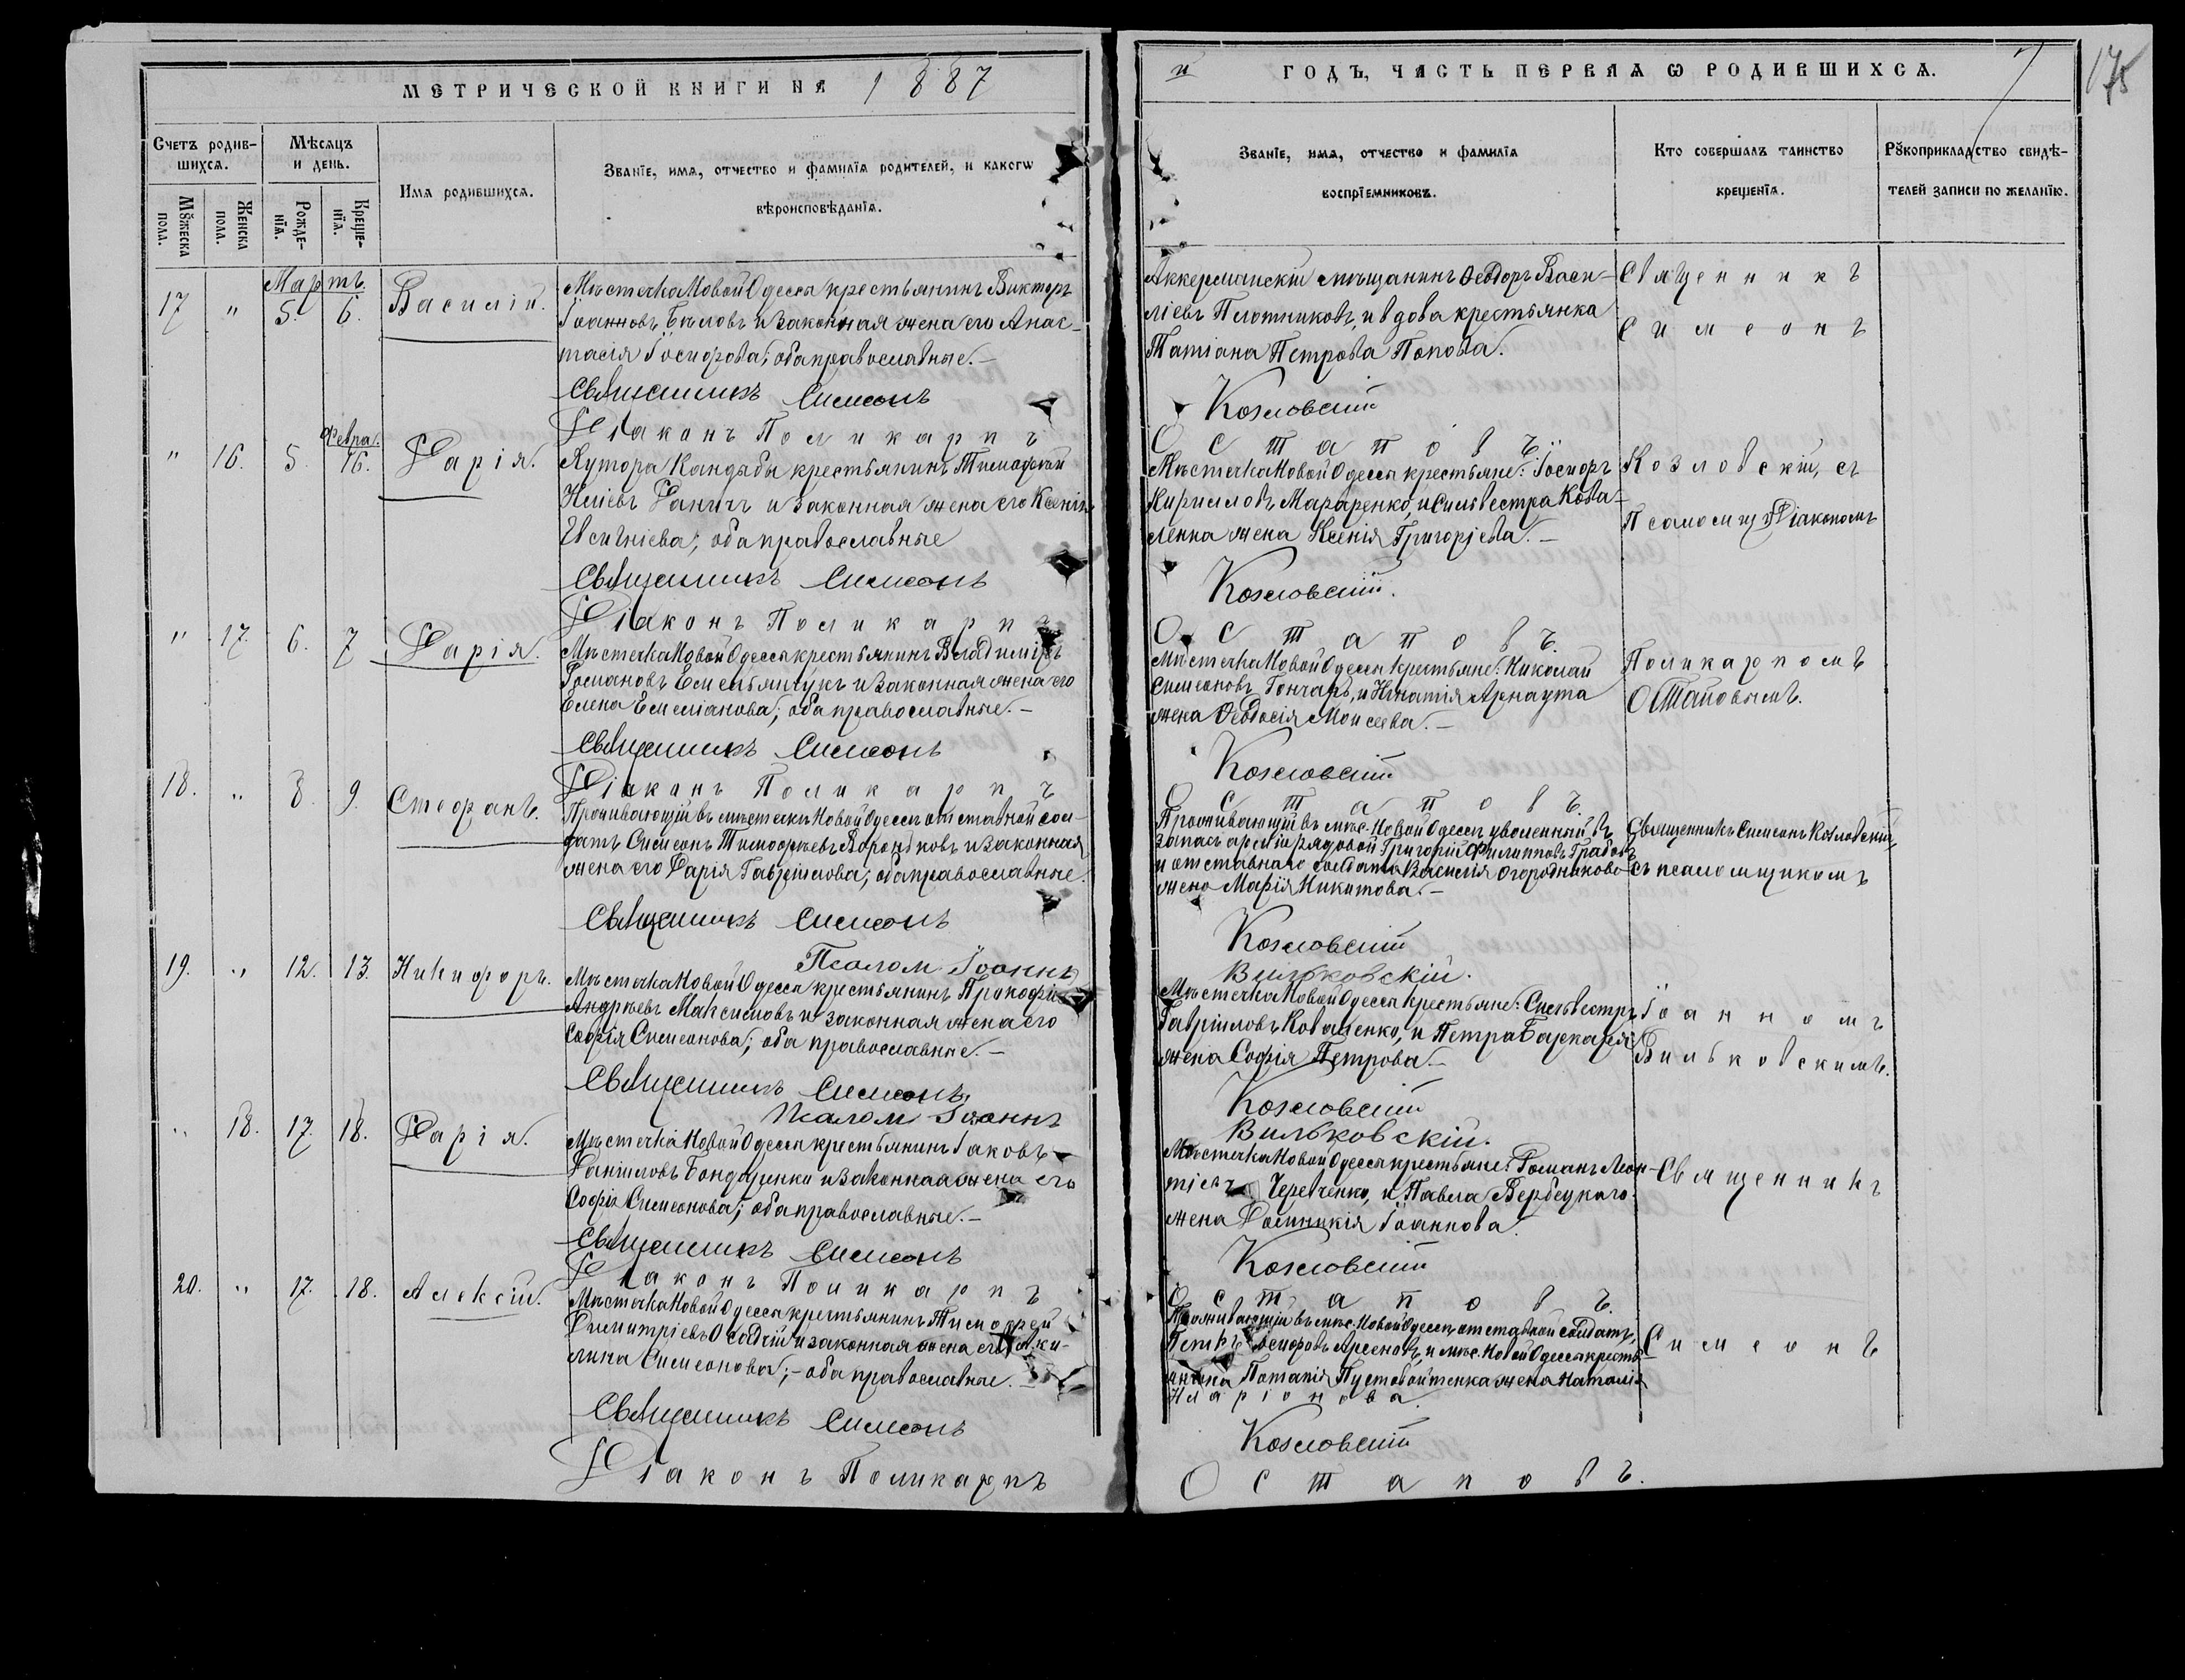 МЕТРИЧЕСКОЙ КНИГИ НА 1887
Счетъ родив-
шихся.
Мѣсяцъ
и день.
Имя родившихся.
Званїе, имя, отчество и фамилїя родителей, и какогѡ
вѣроисповѣданїя.
Мꙋжеска
пола.
Женска
пола.
Рожде-
нїя.
Креще-
нїя.
Мартъ.
17 " 5. 6. Василій.
Мѣстечка Новой Одессы крестьянинъ Викторъ
Іоанновъ Бѣловъ и законная жена его Анас-
тасія Іосифова; оба православные. —
Священникъ Симеонъ
Діаконъ Поликарпъ
Февра.
" 16. 5. 16. Дарія.
Хутора Кандыбы крестьянинъ Тимофей
Иліевъ Ганичъ и законная жена его Ксенія
Евсигніева; оба православные
Священникъ Симеонъ
Діаконъ Поликарпъ
" 17. 6. 7 Дарія.
Мѣстечка Новой Одессы крестьянинъ Владиміръ
Романовъ Емельянчукъ и законная жена его
Елена Емеліанова; оба православные. —
Священникъ Симеонъ
Діаконъ Поликарпъ
18. " 8. 9. Стефанъ.
Проживающій въ мѣстечкѣ Новой Одессѣ отставной сол-
датъ Симеонъ Тимофеевъ Воронковъ и законная
жена его Дарія Гавріилова; оба православные.
Священникъ Симеонъ
Псалом Іоаннъ
19. " 12. 13. Никифоръ.
Мѣстечка Новой Одессы крестьянинъ Прокофій
Андреевъ Максимовъ и законная жена его
Софія Симеонова; оба православные. —
Священникъ Симеонъ
Псалом Іоаннъ
" 18. 17. 18. Дарія.
Мѣстечка Новой Одессы крестьянинъ Іаковъ
Даніиловъ Бондаренко и законная жена его
Софія Симеонова; оба православные. —
Священникъ Симеонъ
Діаконъ Поликарпъ
20. " 17. 18. Алексій.
Мѣстечка Новой Одессы крестьянинъ Тимофей
Димитріевъ Осадчій и законная жена его Аки-
лина Симеонова; - оба православные. —
Священникъ Симеонъ
Діаконъ Поликарпъ
и ГОДЪ, ЧАСТЬ ПЕРВАЯ Ѡ РОДИВШИХСЯ. 7
175
Званїе, имя, отчество и фамилїя
воспрїемниковъ.
Кто совершалъ таинство
крещенїя.
Рꙋкоприкладство свидѣ-
телей записи по желанїю.
Аккерманскій мѣщанинъ Феодоръ Васи-
ліевъ Плотниковъ, и вдова крестьянка
Татіана Петрова Попова.
Козловскій
Остаповъ
Мѣстечка Новой Одессы крестьяне: Іосифъ
Кирилловъ Мараренко, и Сильвестра Кова-
ленка жена Ксенія Григоріева. —
Козловскій.
Остаповъ.
Мѣстечка Новой Одессы крестьяне: Николай
Симеоновъ Гончаръ, и Игнатія Арнаута
жена Феодосія Моисеева. —
Козловскій
Остаповъ.
Проживающій въ мѣс. Новой Одессѣ уволенный въ
запасъ арміи рядовой Григорій Филипповъ Грабовъ,
и отставнаго солдата Василія Огородникова
жена Марія Никитова. —
Козловскій
Вильковскій.
Мѣстечка Новой Одессы крестьяне: Сильвестръ
Гавріиловъ Коваленко, и Петра Баркаря
жена Софія Петрова. —
Козловскій
Вильковскій.
Мѣстечка Новой Одессы крестьяне: Романъ Леон-
тіевъ Черевченко, и Павла Вербецкаго
жена Домникія Іоаннова.
Козловскій
Остаповъ.
Проживающій въ мѣс. Новой Одессѣ отставной солдатъ,
Петръ Арсеновъ, и мѣс. Новой Одессы кресть-
янина Потапія Пустовойтенка жена Наталія
Иларіонова.
Козловскій
Остаповъ.
Священникъ
Симеонъ
Козловскій, съ
Псаломщ. Діакономъ
Поликарпомъ
Остаповымъ.
Священникъ Симеонъ Козловскій,
съ псаломщикомъ
Іоанномъ
Вильковскимъ.
Священникъ
Симеонъ